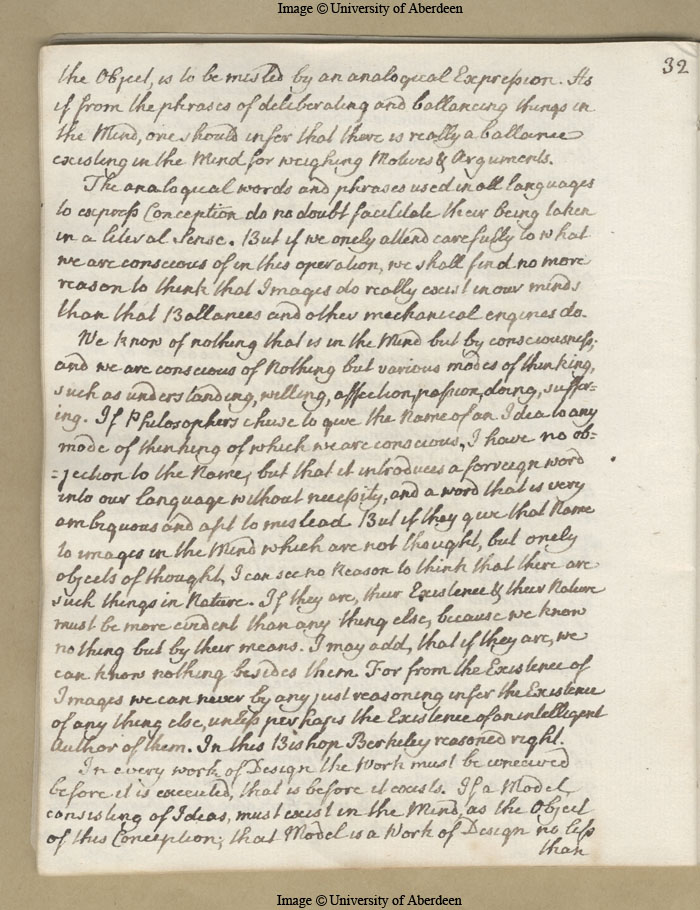 Image © University of Aberdeen
32
the Object, is to be misled by an analogical Expression. As
if from the phrases of deliberating and ballancing things in
the Mind, one should infer that there is really a ballance
existing in the Mind for weighing Motives & Arguments.
The analogical words and phrases used in all languages
to express Conception do no doubt facilitate their being taken
in a literal Sense. But if we onely attend carefully to what
we are conscious of in this operation, we shall find no more
reason to think that Images do really exist in our minds
than that Ballances and other mechanical engines do.
We know of nothing that is in the Mind but by consciousness,
and we are conscious of Nothing but various modes of thinking,
such as understanding, willing, affection, passion, doing, suffer-
ing. If Philosophers chuse to give the Name of an Idea to any
mode of thinking of which we are conscious, I have no ob=
=jection to the Name, but that it introduces a forreign word
into our language without necessity, and a word that is very
ambiguous and apt to mislead. But if they give that Name
to images in the Mind which are not thought, but onely
objects of thought, I can see no Reason to think that there are
such things in Nature. If they are, their Existence & their Nature
must be more evident than any thing else, because we know
nothing but by their means. I may add, that if they are, we
can know nothing besides them. For from the Existence of
Images we can never by any just reasoning infer the Existence
of any thing else, unless perhaps the Existence of an intelligent
Author of them. In this Bishop Berkeley reasoned right.
In every work of Design the Work must be conceived
before it is executed, that is before it exists. If a Model,
consisting of Ideas, must exist in the Mind, as the Object
of this Conception; that Model is a Work of Design no less
than
Image © University of Aberdeen